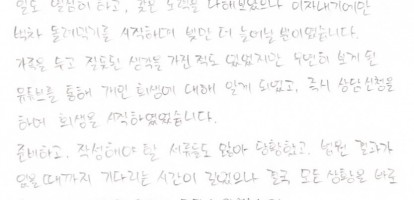 일도 열심히 하고, 같은 노력을 다해보았으나 이자내기에만
벅차 돌려막기를 시작하며 빚만 더 늘어날 뿐이었습니다.
가족을 두고 잘못된 생각을 가진 적도 있었지만 우연히 보게 된
유튜브를 통해 개인 회생에 대해 알게 되었고, 즉시 상담신청을
하여 회생을 시작하였었습니다.
준비하고, 작성해야 할 서류들도 많아 당황했고, 법원 결과가
있을 때까지 기다리는 시간이 길었으나 결국 모든 상황은 바로